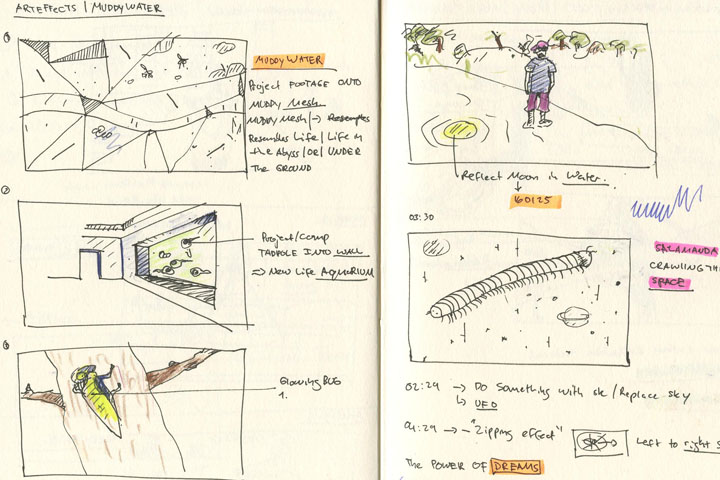 ARTEFFECTS / MUDDY WATER
1
MUDDY WATER
Project FOOTAGE ONTO
MUDDY Mesh
MUDDY Mesh/→ Resemples
Resembles Life / Life in
the Abyss / OR / UNDER
The GROUND
2
Project/Comp
TADPOLE INTO WALL
⇒ New Life AQUARIUM
3
Glowing BUG
1.
Reflect Moon in Water.
60125
03:30
SALAMANDA
CRAWLING TH
SPACE
02:29 → Do Something with sk / Replace sky
↳ UFO
04:29 → "Zipping effect"
Left to right s
The POWER OF DREAMS